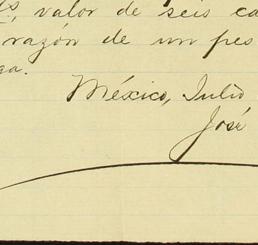 valor de seis
razón de un
México, Julio
José